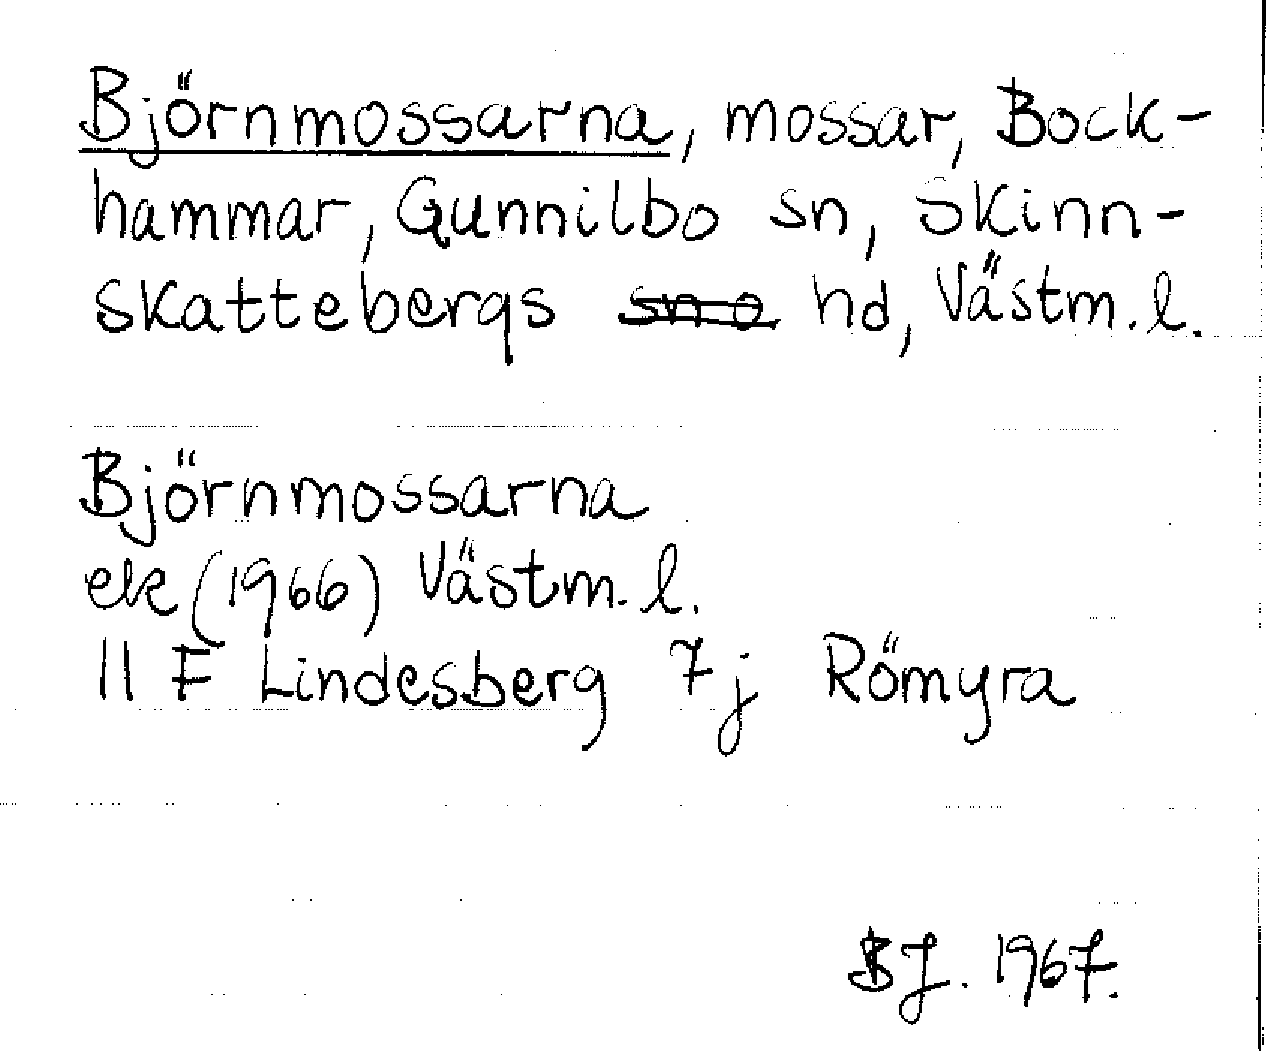 Björnmossarna, mossar, Bock-
hammar, Gunnilbo sn, Skinn-
skattebergs hd, Västm. l.
Björnmossarna
ek (1966) Västm. l.
11 F Lindesberg 7j Römyra
BJ. 1967.